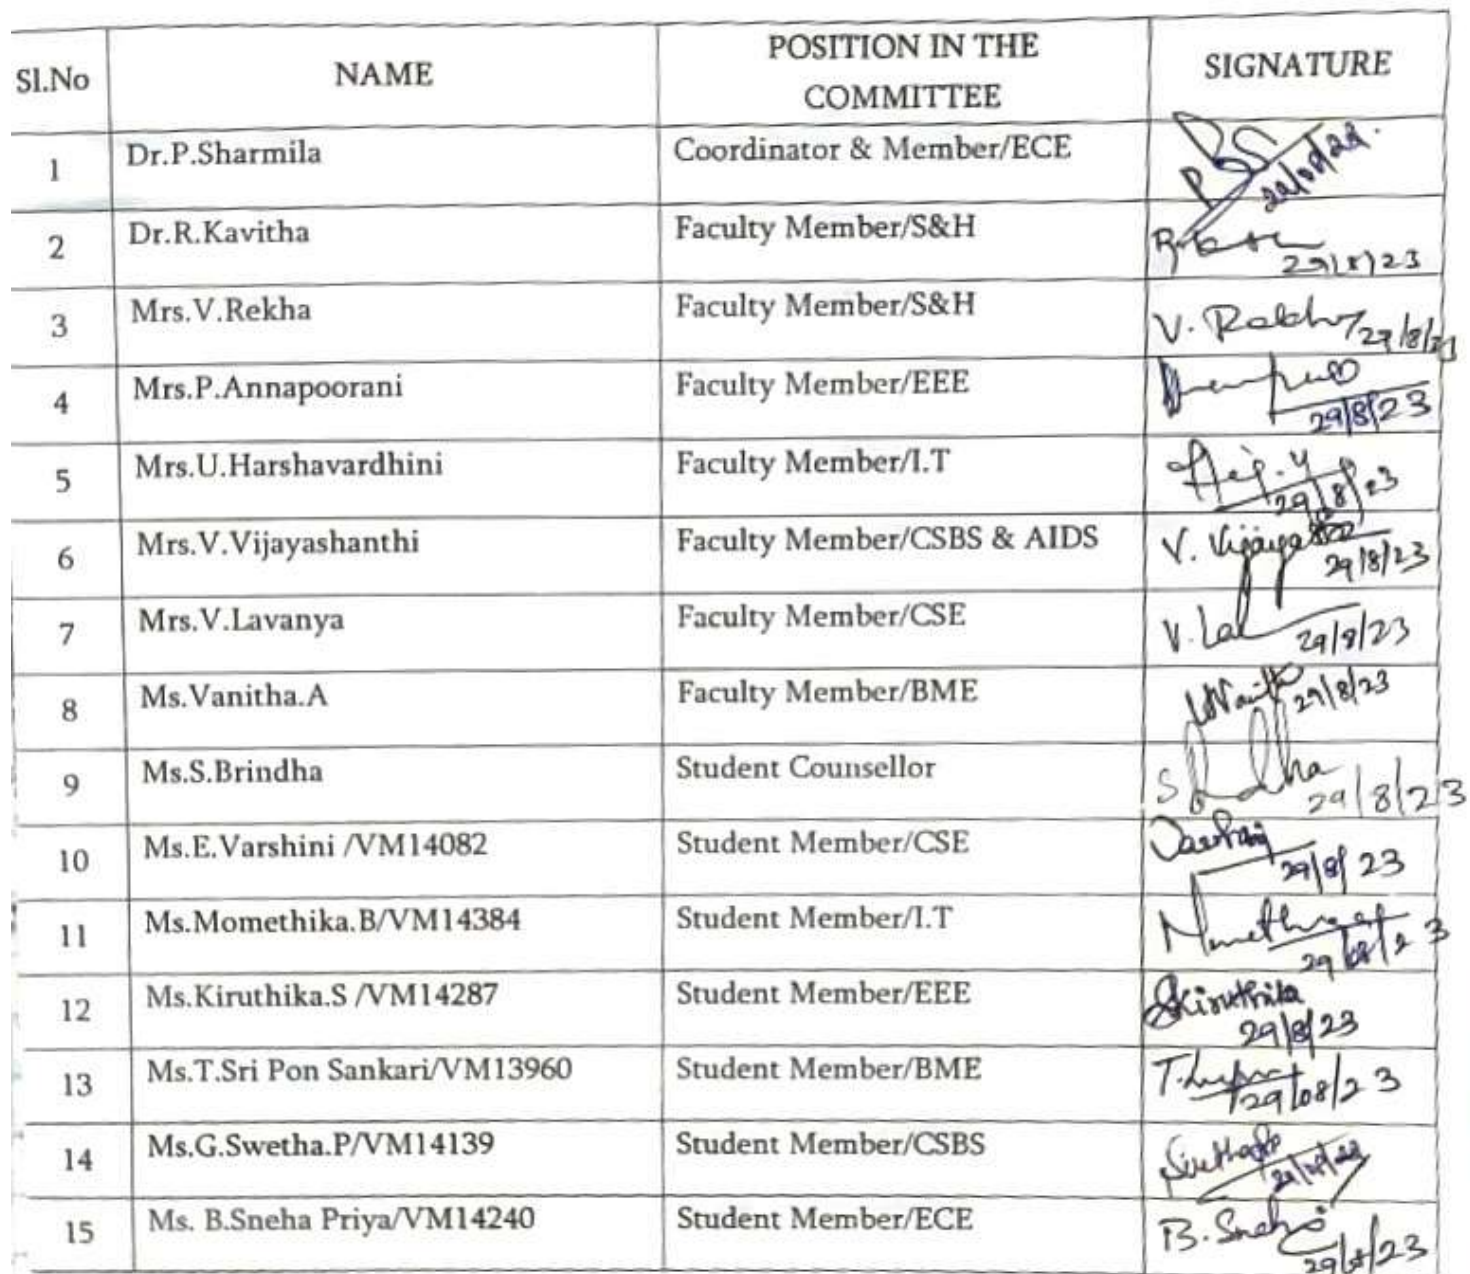 Sl.No NAME POSITION IN THE COMMITTEE SIGNATURE
1 Dr.P.Sharmila Coordinator & Member/ECE
2 Dr.R.Kavitha Faculty Member/S&H 29/8/23
3 Mrs.V.Rekha Faculty Member/S&H V. Rekha 29/8/23
4 Mrs.P.Annapoorani Faculty Member/EEE 29/8/23
5 Mrs.U.Harshavardhini Faculty Member/I.T 29/8/23
6 Mrs.V.Vijayashanthi Faculty Member/CSBS & AIDS 29/8/23
7 Mrs.V.Lavanya Faculty Member/CSE V.Lal 29/8/23
8 Ms.Vanitha.A Faculty Member/BME 29/8/23
9 Ms.S.Brindha Student Counsellor 29/8/23
10 Ms.E.Varshini /VM14082 Student Member/CSE 29/8/23
11 Ms.Momethika.B/VM14384 Student Member/I.T 29/08/23
12 Ms.Kiruthika.S /VM14287 Student Member/EEE Skiruthika 29/8/23
13 Ms.T.Sri Pon Sankari/VM13960 Student Member/BME 29/08/23
14 Ms.G.Swetha.P/VM14139 Student Member/CSBS
15 Ms. B.Sneha Priya/VM14240 Student Member/ECE B.Sneha 29/8/23